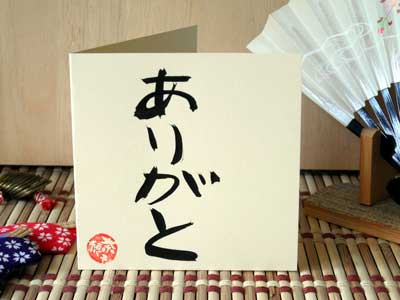 ありがと